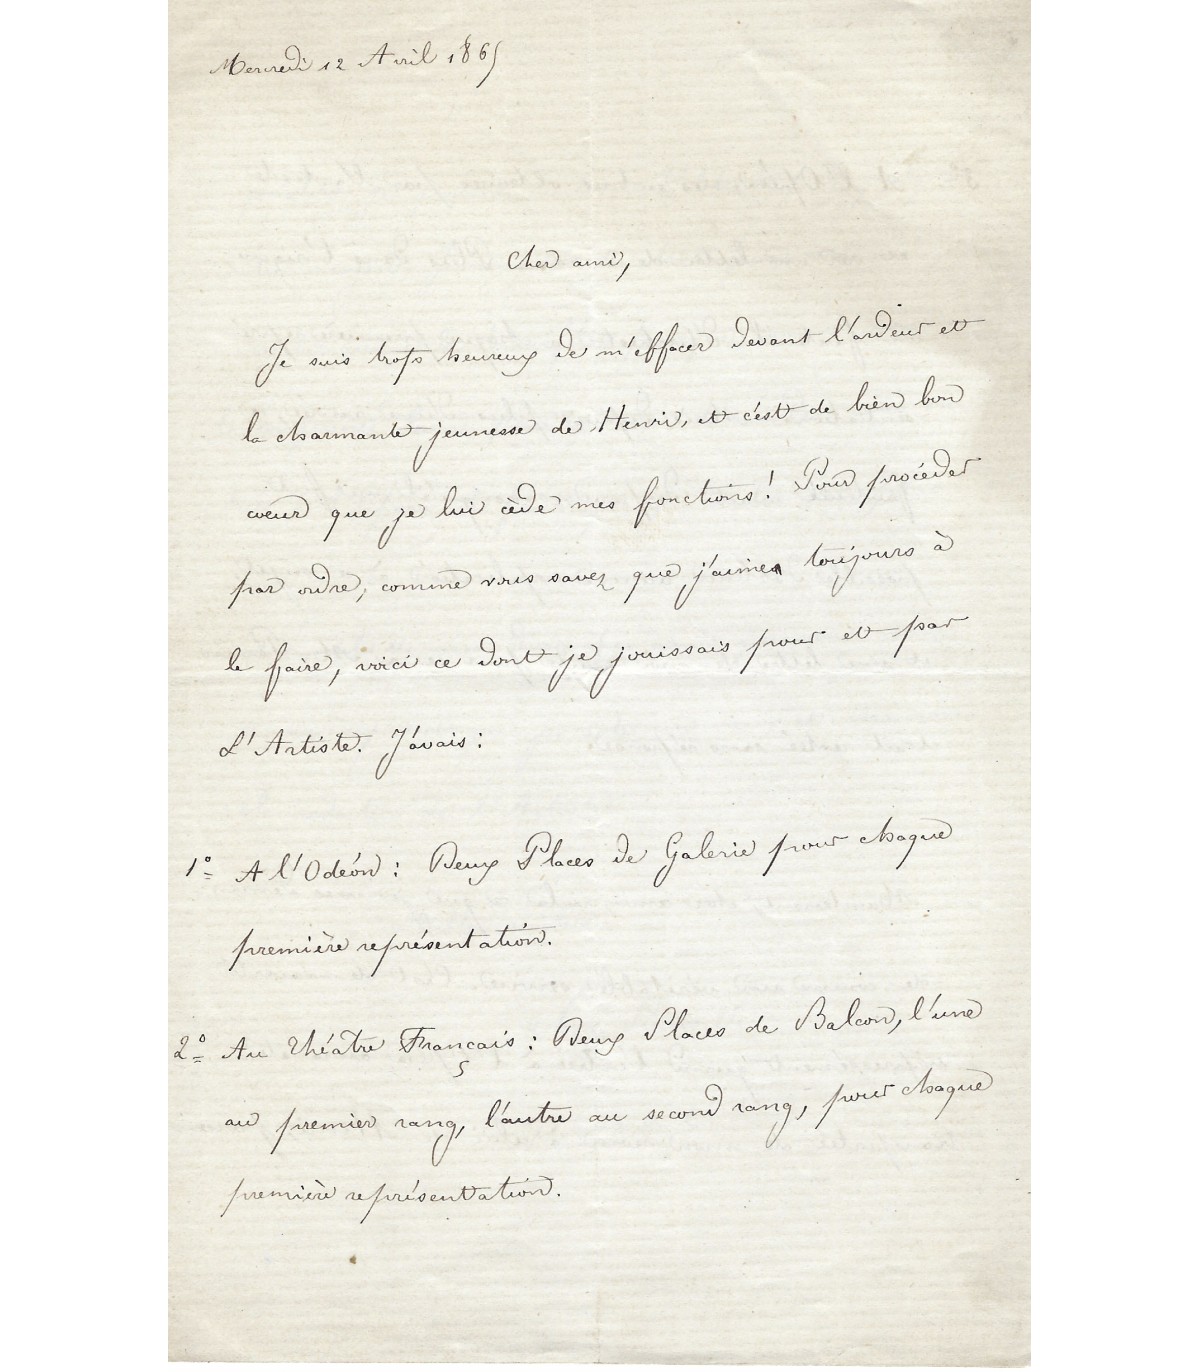 Mercredi 12 Avril 1865
Cher ami,
Je suis trop heureux de m'effacer devant l'ardeur et
la charmante jeunesse de Henri, et c'est de bien bon
coeur que je lui cède mes fonctions! Pour procéder
par ordre, comme vous savez que j'aime toujours à
le faire, voici ce dont je jouissais pour et par
L'Artiste. J'avais:
1º A l'Odéon: Deux Places de Galerie pour chaque
première représentation.
2º Au Théâtre Français: Deux Places de Balcon, l'une
au premier rang, l'autre au second rang, pour chaque
première représentation.